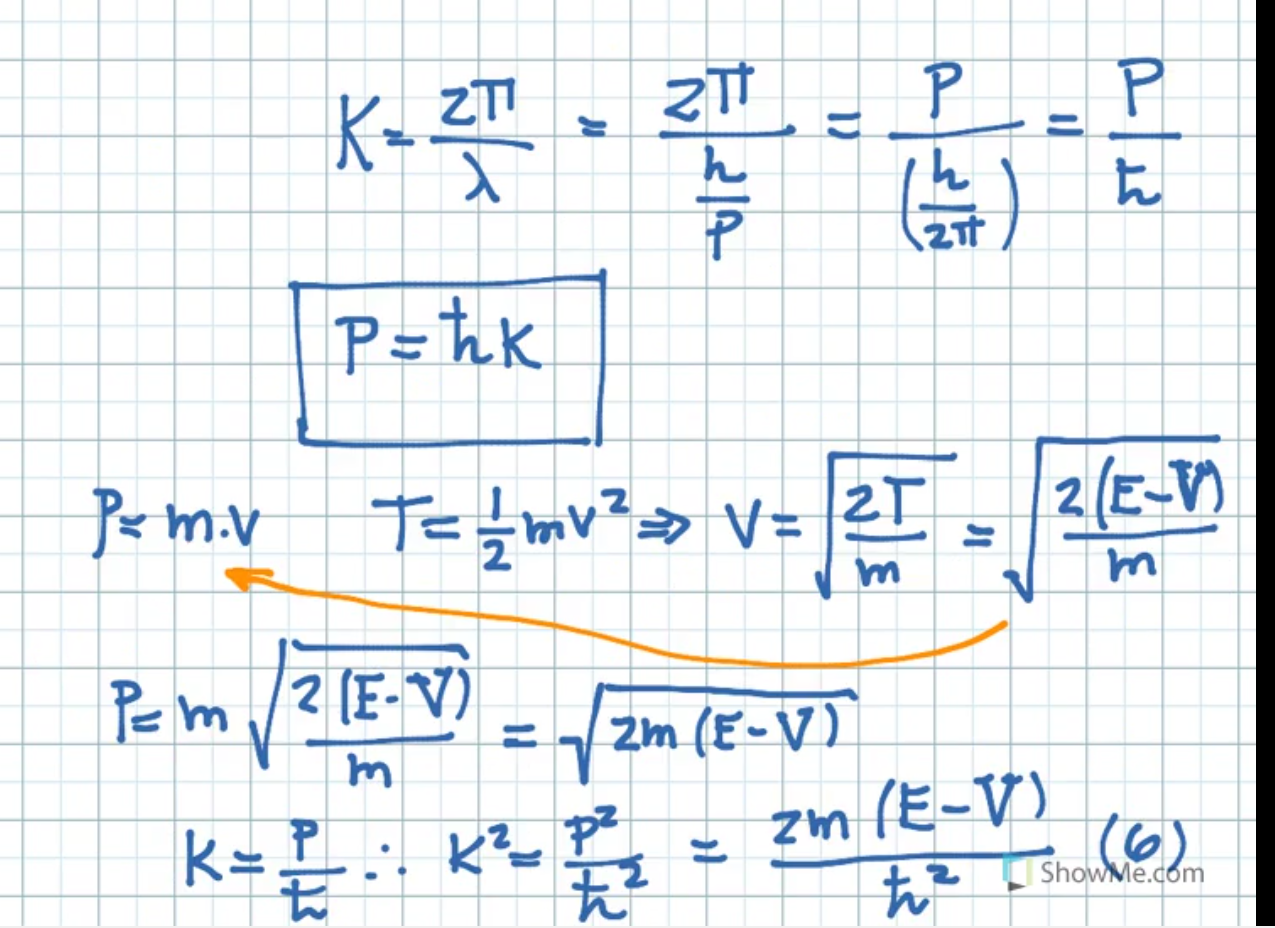 K = 2π/λ = 2π/(h/P) = P/(h/2π) = P/ħ
P = ħK
P = m.v T = 1/2 mv² ⇒ V = √(2T/m) = √(2(E-V)/m)
P = m √(2(E-V)/m) = √(2m(E-V))
K = P/ħ ∴ K² = P²/ħ² = 2m(E-V)/ħ² (6)
ShowMe.com